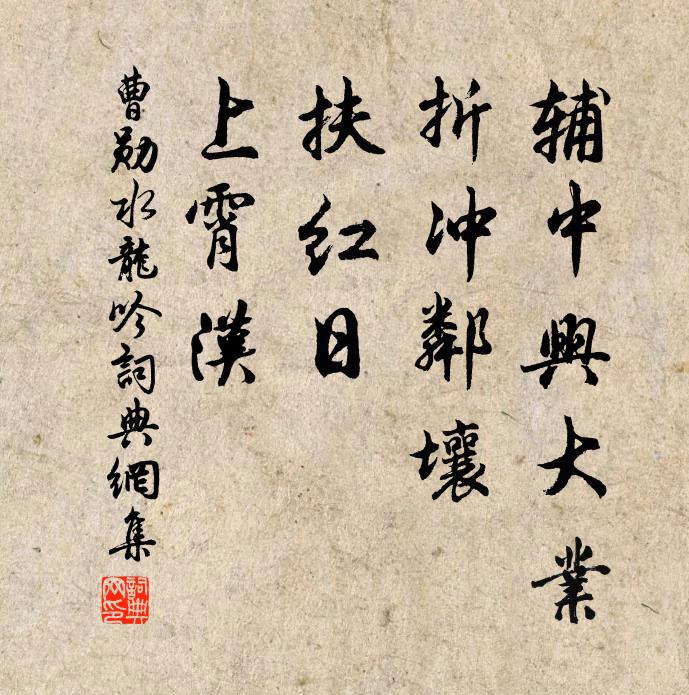 辅中興大業
折冲鄰壤
扶红日
上霄漢
曹勛水龍吟詞典網集
詞典网印